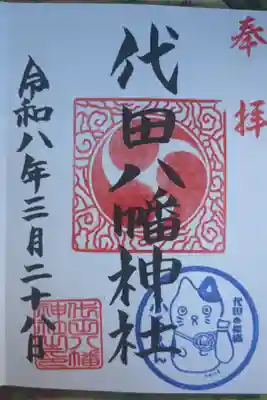 奉拝
代田八幡神社
令和八年三月二十八日
代田八幡神社